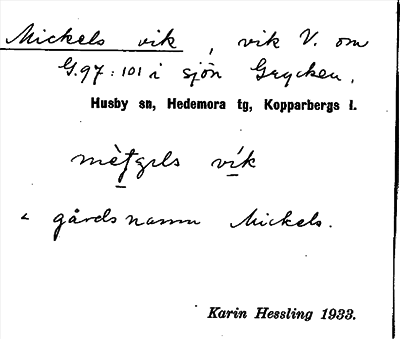 Mickels vik, vik V. om
G.97:101 i sjön Grycken.
Husby sn, Hedemora tg, Kopparbergs l.
vík
< gårdsnamn Mickels.
Karin Hessling 1933.